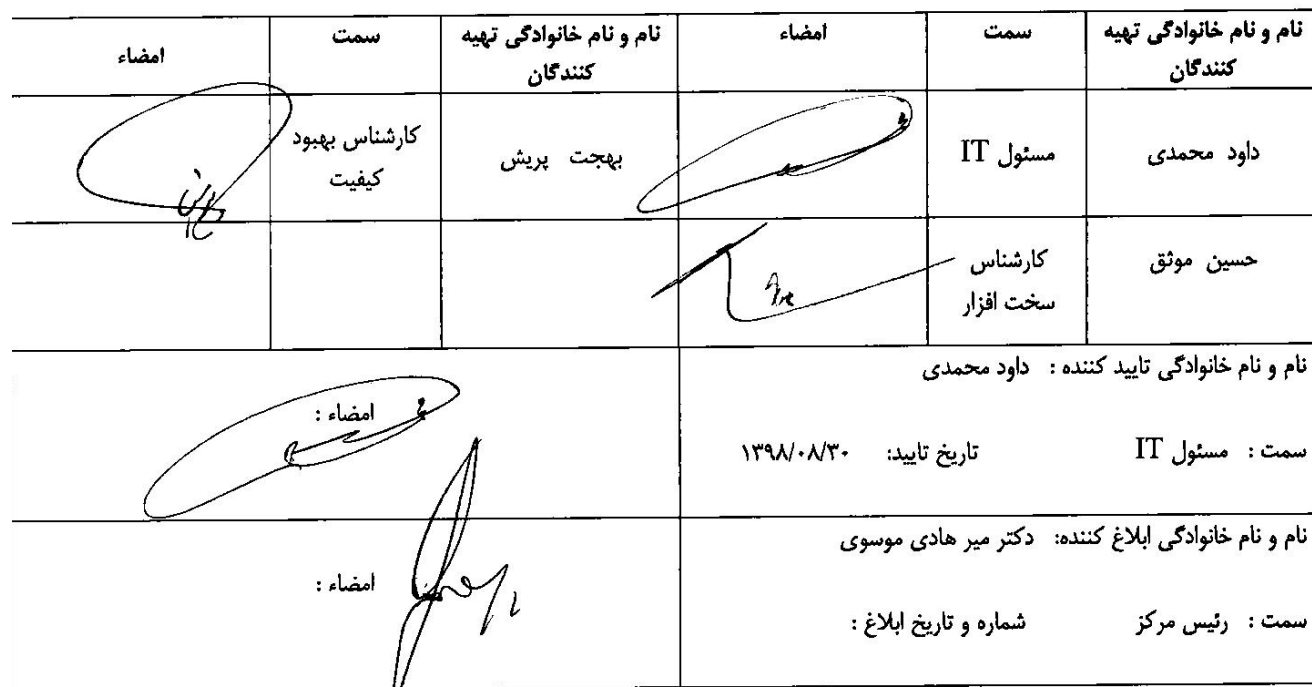 نام و نام خانوادگی تهیه کنندگان سمت امضاء نام و نام خانوادگی تهیه کنندگان سمت امضاء
داود محمدی مسئول IT بهجت پریش کارشناس بهبود کیفیت
حسین موثق کارشناس سخت افزار
نام و نام خانوادگی تایید کننده : داود محمدی
امضاء :
سمت : مسئول IT تاریخ تایید: ۱۳۹۸/۰۸/۳۰
نام و نام خانوادگی ابلاغ کننده: دکتر میر هادی موسوی
امضاء :
سمت : رئیس مرکز شماره و تاریخ ابلاغ :